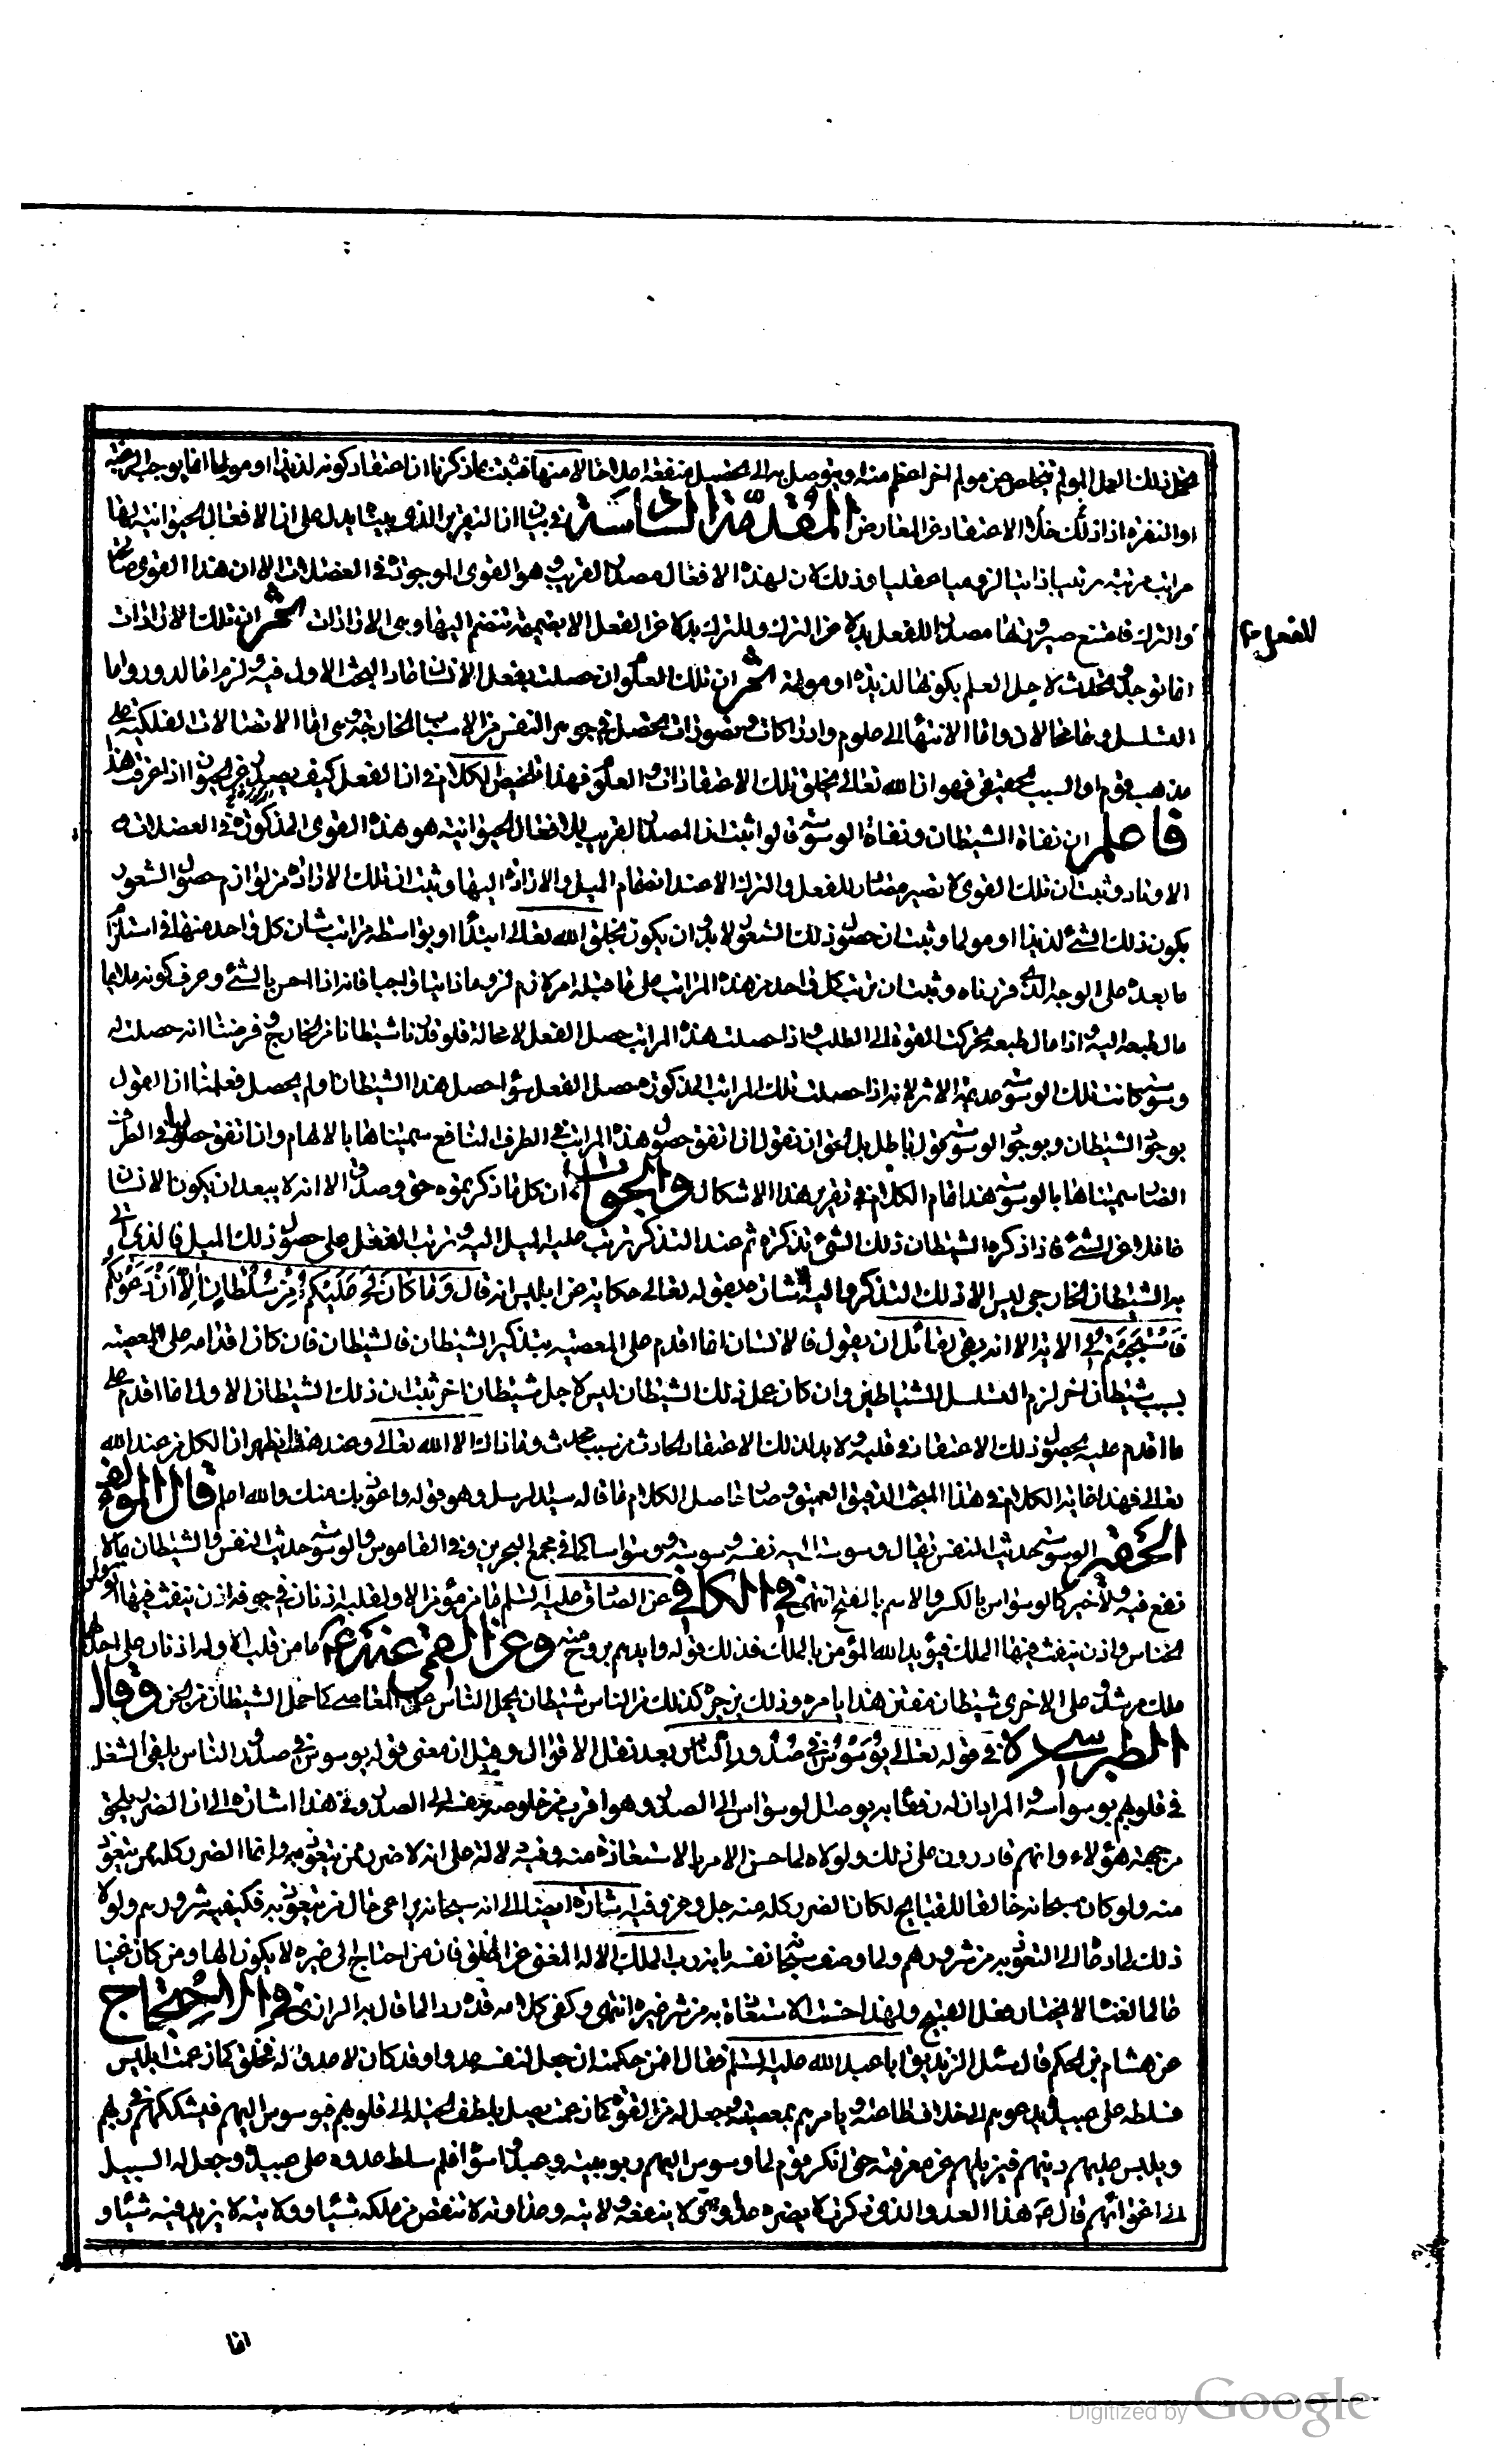 فعل ذلك العمل المولم تخلص عن مولم اخر اعظم منه او يتوصل به الى تحصيل منفعة اعلا حالا منها فثبت بما ذكرنا ان اعتقاد كونه لذيذا او مولما انما يوجب الرغبة
او النفرة اذا خلا ذلك الاعتقاد عن المعارض المقدمة السادسة في بيان ان التقرير الذي بيناه يدل على ان الافعال الحيوانية لها
مراتب مرتبة ترتيبا ذاتيا لزوميا عقليا وذلك لان لهذه الافعال مصدرها القريب هو القوى الموجودة في العضلات الا ان هذه القوى صالحة
والترك فامتنع صيرورتها مصدرا للفعل بدلا عن الترك وللترك بدلا عن الفعل الا بضميمة تنضم اليها وهي الارادات ثم ان تلك الارادات
للفعل
انما توجد وتحدث لاجل العلم بكونها لذيذة او مولمة ثم ان تلك العلوم ان حصلت بفعل الانسان عاد البحث الاول فيه ولزم اما الدور واما
التسلسل وهما محالان واما الانتهاء الى علوم وادراكات وتصورات تحصل في جوهر النفس من الاسباب الخارجة وهي اما الاتصالات الفلكية على
مذهب قوم او السبب الحقيقي فهو ان الله تعالى يخلق تلك الاعتقادات والعلوم فهذا تلخيص الكلام في ان الفعل كيف يصدر عن الحيوان اذا عرفت هذا
فاعلم ان نفاة الشيطان ونفاة الوسوسة قالوا ثبت ان المصدر القريب للافعال الحيوانية هو هذه القوى المذكورة في العضلات و
الاوتاد وثبت ان تلك القوى لا تصير مصدرا للفعل والترك الا عند انضمام الميل والارادة اليها وثبت ان تلك الارادة من لوازم حصول الشعور
بكون ذلك الشئ لذيذا او مولما وثبت ان حصول ذلك الشعور لا بد وان يكون بخلق الله تعالى ابتداء او بواسطة مراتب شان كل واحد منها في استلزام
ما بعده على الوجه الذي قررناه وثبت ان ترتب كل واحد من هذه المراتب على ما قبله امر لازم لزوما ذاتيا واجبا فانه اذا احس بالشئ وعرف كونه ملايما
مال طبعه اليه واذا مال طبعه تحركت القوة الى الطلب فاذا حصلت هذه المراتب حصل الفعل لا محالة فلو قدرنا شيطانا من الخارج وفرضنا انه حصلت له
وسوسة كانت تلك الوسوسة عديمة الاثر لانه اذا حصلت تلك المراتب المذكورة حصل الفعل سواء حصل هذا الشيطان او لم يحصل فعلمنا ان القول
بوجود الشيطان وبوجود الوسوسة قول باطل بل الحق ان نقول ان اتفق حصول هذه المراتب في الطرف النافع سميناها بالالهام وان اتفق حصولها في الطرف
الضار سميناها بالوسوسة هذا تمام الكلام في تقرير هذا الاشكال والجواب ان كل ما ذكرتموه حق وصدق الا انه لا يبعد ان يكون الانسان
غافلا عن الشئ فاذا ذكره الشيطان ذلك الشئ تذكره ثم عند التذكر ترتب عليه الميل اليه وترتب الفعل على حصول ذلك الميل فالذي اتى
به الشيطان الخارجي ليس الا ذلك التذكر واليه الاشارة بقوله تعالى حكاية عن ابليس انه قال وما كان لي عليكم من سلطان الا ان دعوتكم
فاستجبتم لي الاية الا انه بقي لقائل ان يقول فالانسان انما اقدم على المعصية بتذكير الشيطان فالشيطان فان كان اقدامه على المعصية
بسبب شيطان اخر لزم التسلسل للشياطين وان كان عمل ذلك الشيطان ليس لاجل شيطان اخر ثبت ان ذلك الشيطان الاول انما اقدم على
ما اقدم عليه بحصول ذلك الاعتقاد في قلبه ولا بد لذلك الاعتقاد الحادث من سبب محدث وما ذاك الا الله تعالى وعند هذا يظهر ان الكل من عند الله
تعالى فهذا غاية الكلام في هذا المبحث الدقيق العميق وصار حاصل الكلام ما قاله سيد الرسل وهو قوله واعوذ بك منك والله اعلم قال المؤلف
الحقير الوسوسة حديث النفس يقال وسوست اليه نفسه وسوسة ووسواسا كما في مجمع البحرين وفي القاموس والوسوسة حديث النفس والشيطان بما لا
نفع فيه ولا خير كالوسواس بالكسر والاسم بالفتح انتهى في الكافي عن الصادق عليه السلم ما من مؤمن الا ولقلبه اذنان في جوفه اذن ينفث فيها الوسواس
الخناس واذن ينفث فيها الملك فيؤيد الله المؤمن بالملك فذلك قوله وايدهم بروح منه وعن القمي عنه ع ما من قلب الا وله اذنان على احدهما
ملك مرشد وعلى الاخرى شيطان مفتن هذا يامره وذلك يزجره كذلك من الناس شيطان يحمل الناس على المعاصي كما حمل الشيطان من الجن وقال
الطبرسي ره في قوله تعالى يوسوس في صدور الناس بعد نقل الاقوال وقيل ان معنى قوله يوسوس في صدور الناس يلقي الشغل
في قلوبهم بوسواسه والمراد ان له رفقا به يوصل الوسواس الى الصدر وهو اقرب من خلوصه بنفسه الى الصدر وفي هذا اشارة الى ان الضرر يلحق
من جهة هؤلاء وانهم قادرون على ذلك ولولاه لما حسن الامر بالاستعاذة منه وفيه دلالة على انه لا ضرر ممن يتعوذ به وانما الضرر كله ممن يتعوذ
منه ولو كان سبحانه خالقا للقبايح لكان الضرر كله منه جل وعز وفيه اشارة ايضا الى انه سبحانه يراعي حال من يتعوذ به فيكفيه شرورهم ولولا
ذلك لما دعاه الى التعوذ به من شرورهم ولما وصف سبحانه نفسه بانه رب الملك الاله المغني عن الخلق فان من احتاج الى غيره لا يكون الها ومن كان غنيا
عالما لغناه لا يختار فعل القبيح ولهذا حسنت الاستعاذة به من شر غيره انتهى وكفى كلامه قده ردا لما قال به الرازي في الاحتجاج
عن هشام بن الحكم قال سئل الزنديق ابا عبد الله عليه السلم فقال افمن حكمته ان جعل لنفسه عدوا وقد كان لا عدو له فخلق كما زعمت ابليس
فسلطه على عبيده يدعوهم الى خلاف طاعته ويامرهم بمعصيته وجعل له من القوة كما زعمت يصل بلطف الحيلة الى قلوبهم فيوسوس اليهم فيشككهم في ربهم
ويلبس عليهم دينهم فيزيلهم عن معرفته حتى انكر قوم لما وسوس اليهم ربوبيته وعبدوا سواه فلم سلط عدوه على عبيده وجعل له السبيل
الى اغوائهم قال ع هذا العدو الذي ذكرت لا يضره عداوته ولا ينفعه ولايته وعداوته لا تنقص من ملكه شيئا وولايته لا يزيد فيه شيئا و
انما
Digitized by Google